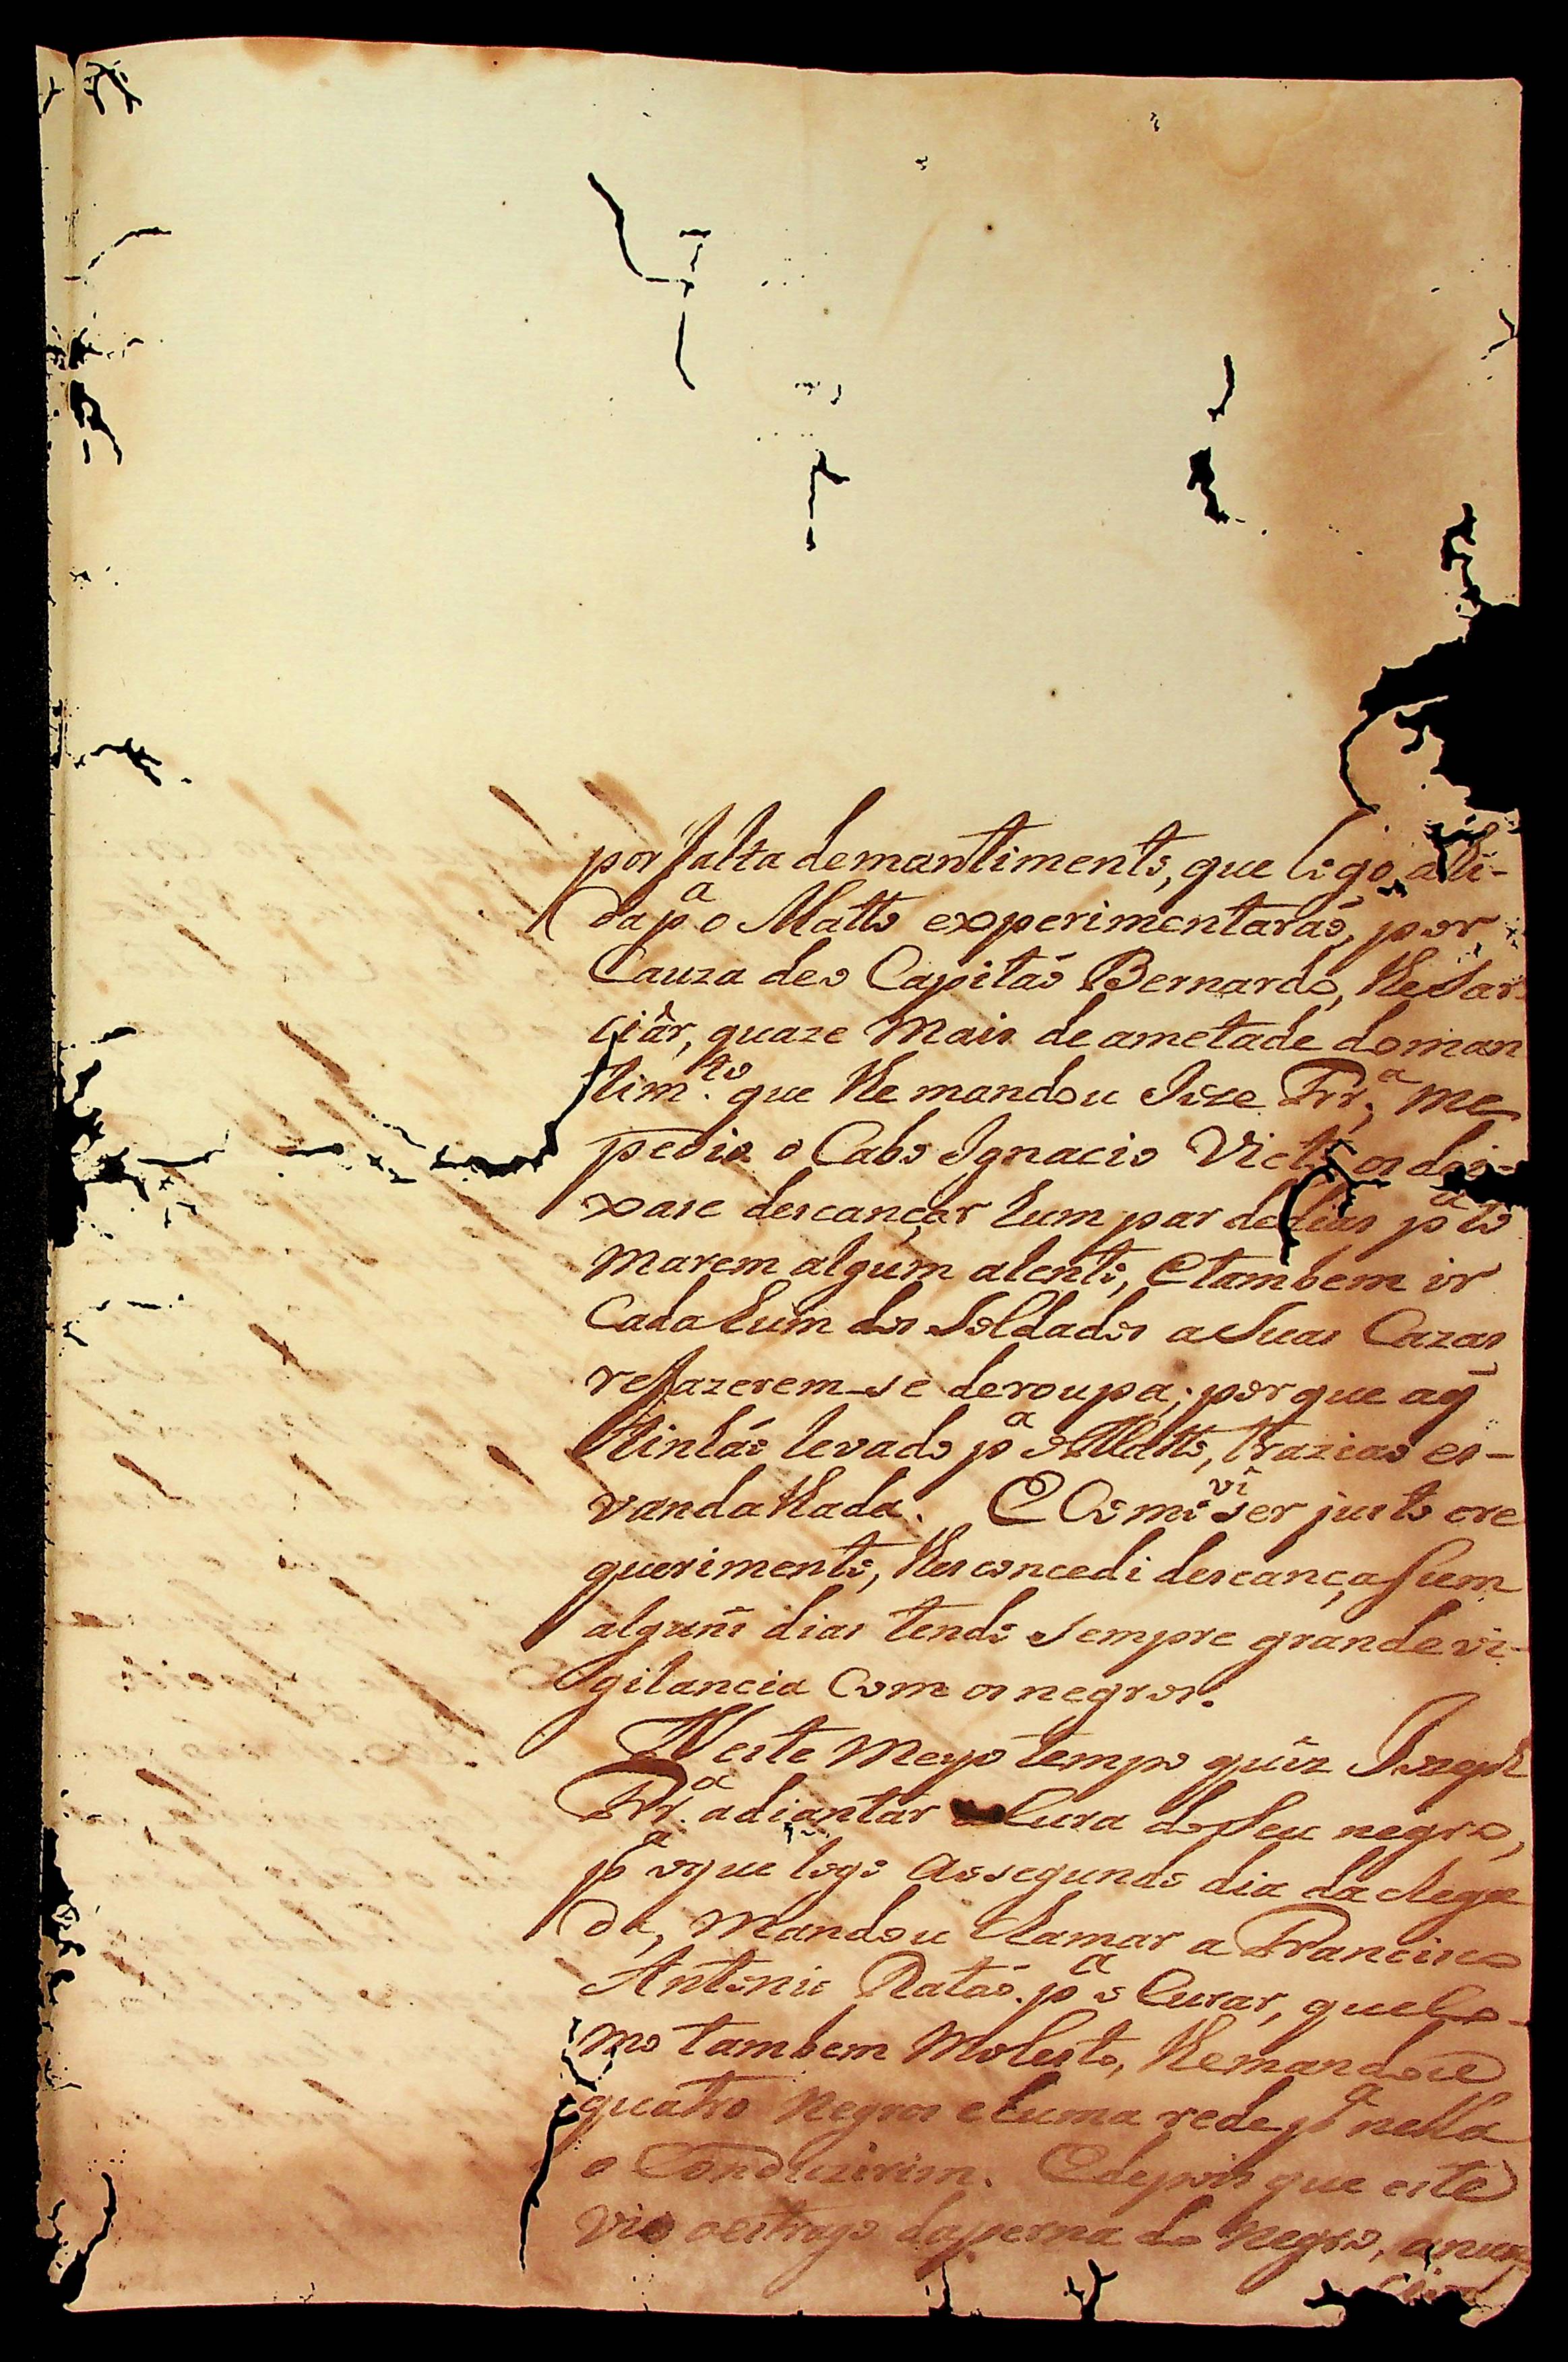 por falta demantimento, que logo a hi-
da p.ª o Matto experimentaraó, por
Cauza deo Capitaó Bernardo, lhe Sar
ciâr, quaze mais de ametade do man
tim.to que lhe mandou Joze Frr.ª, me
pedio o Cabo Ignacio Victo os dei-
xase descançar hum par de dias p.ª to
marem algum alento, E tambem ir
Cada hum dos Soldados a Suas Cazas
reffazerem-se deroupa; por que a q̃
tinhaó levado p.ª o Matto, traziaó es-
vandalhada. E Como vi ser justo ore
querimento, lhes concedi descançaSsem
alguñs dias tendo sempre grande vi-
gilancia Com os negros.
Neste meyo tempo quiz Jozeph
Frr.ª adiantar a Cura do Seu negro,
p.ª oque logo ao segundo dia da chega
da, mandou chamar a Francisco
Antonio Rataó. p.ª o Curar, que Co-
mo tambem molesto, lhe mandou
quatro Negros e huma rede p.ª nella
o Conduzirem. E depois que este
vio o estrago da perna do Negro, anun
ciou